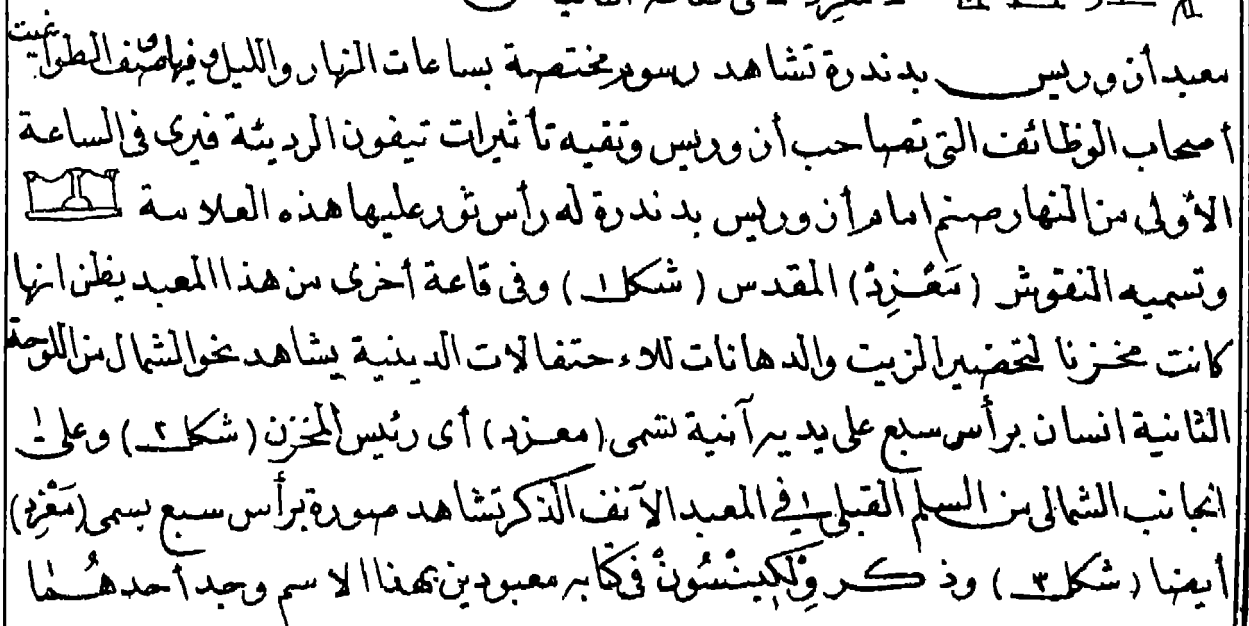 معبد أن وريس بدندرة تشاهد رسوم مختصة بساعات النهار والليل وفيها صنف الطواغيت
أصحاب الوظائف التي تصاحب أن وريس وتقيه تأثيرات تيفون الرديئة فيرى في الساعة
الأولى من النهار صنم امام أن وريس بدندرة له رأس ثور عليها هذه العلامة
وتسميه النقوش (مَعْزِدْ) المقدس (شكل ١) وفى قاعة أخرى من هذا المعبد يظن انها
كانت مخزنا لتحضير الزيت والدهانات للاءحتفالات الدينية يشاهد نحو الشمال من اللوحة
الثانية انسان برأس سبع على يديه آنية تسمى (معزد) أى رئيس المخزن (شكل ٢) وعلى
الجانب الشمالى من السلم القبلى فى المعبد الآنف الذكر تشاهد صورة برأس سبع يسمى (مَعْزِد)
أيضا (شكل ٣) وذكر وِلْكِينْسُونْ فى كتابه معبودين بهذا الاسم وجد أحدهُما